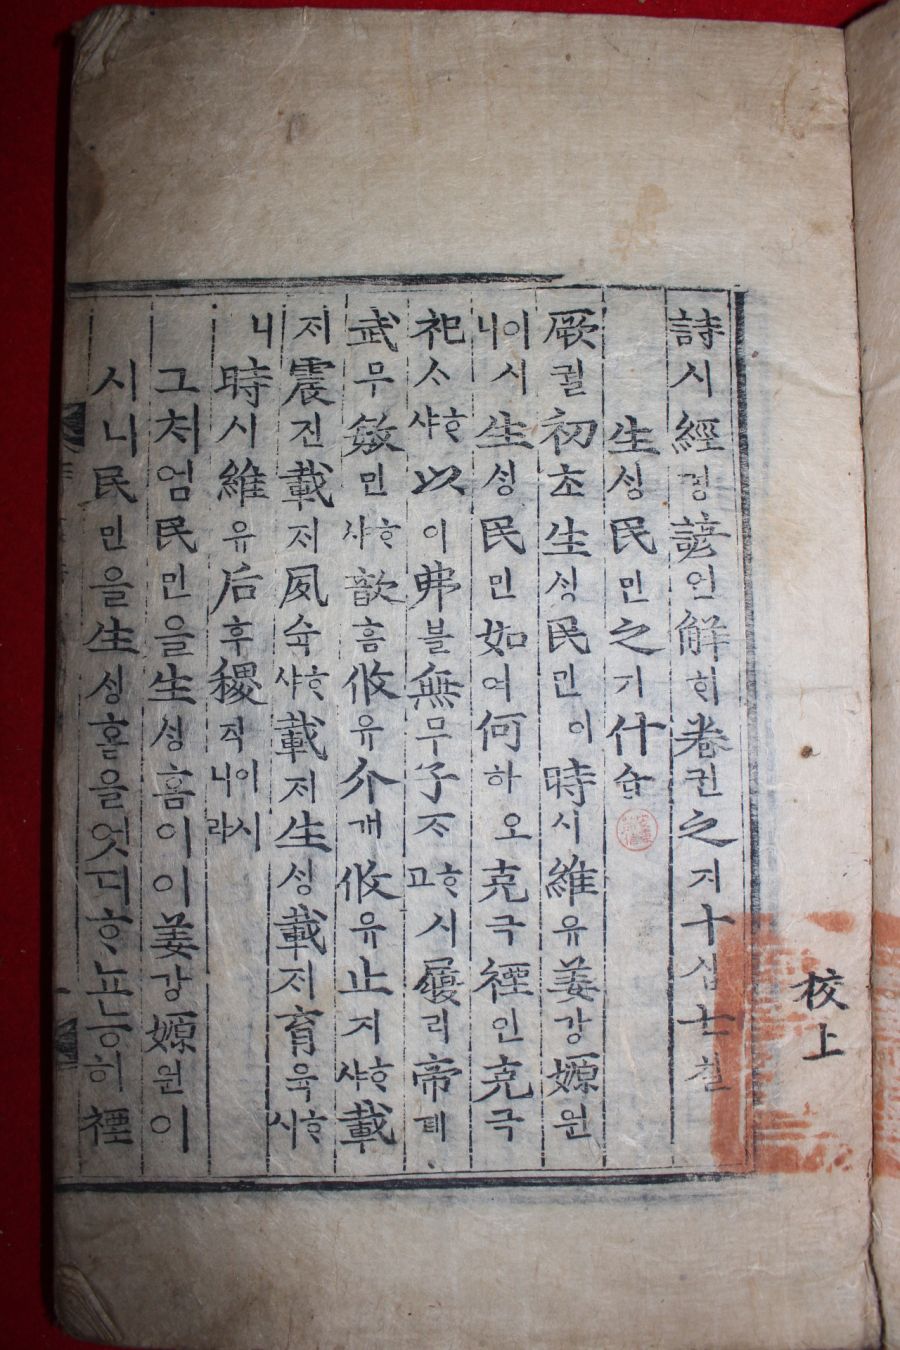 校上
詩시經경諺언解ᄒᆡ卷권之지十십七칠
生ᄉᆡᆼ民민之지什습
厥궐初초生ᄉᆡᆼ民민이時시維유姜강嫄원
이시니生ᄉᆡᆼ民민如여何하오克극禋인克극
祀ᄉᆞᄒᆞ샤以이弗블無무子ᄌᆞᄒᆞ고시履리帝뎨
武무敏민ᄒᆞ샤歆흠攸유介개攸유止지ᄒᆞ샤載
ᄌᆡ震진載ᄌᆡ夙슉ᄒᆞ샤載ᄌᆡ生ᄉᆡᆼ載ᄌᆡ育육ᄒᆞ시
니時시維유后후稷직이시니라
그처엄民민을生ᄉᆡᆼ홈이이姜강嫄원이
시니民민을生ᄉᆡᆼ홀을엇디ᄒᆞ뇨능히禋